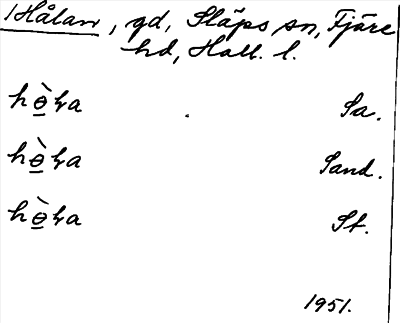 1 Hålan, gd, Släps sn, Fjäre
hd, Hall. l.
hɵ̀ɽa Sa.
hɵ̀ɽa Sand.
hɵ̀ɽa St.
1951.